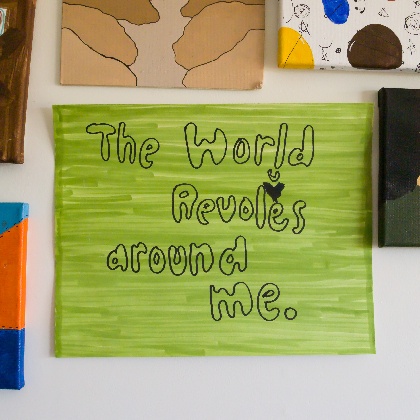 The World
Revoles
around
me.